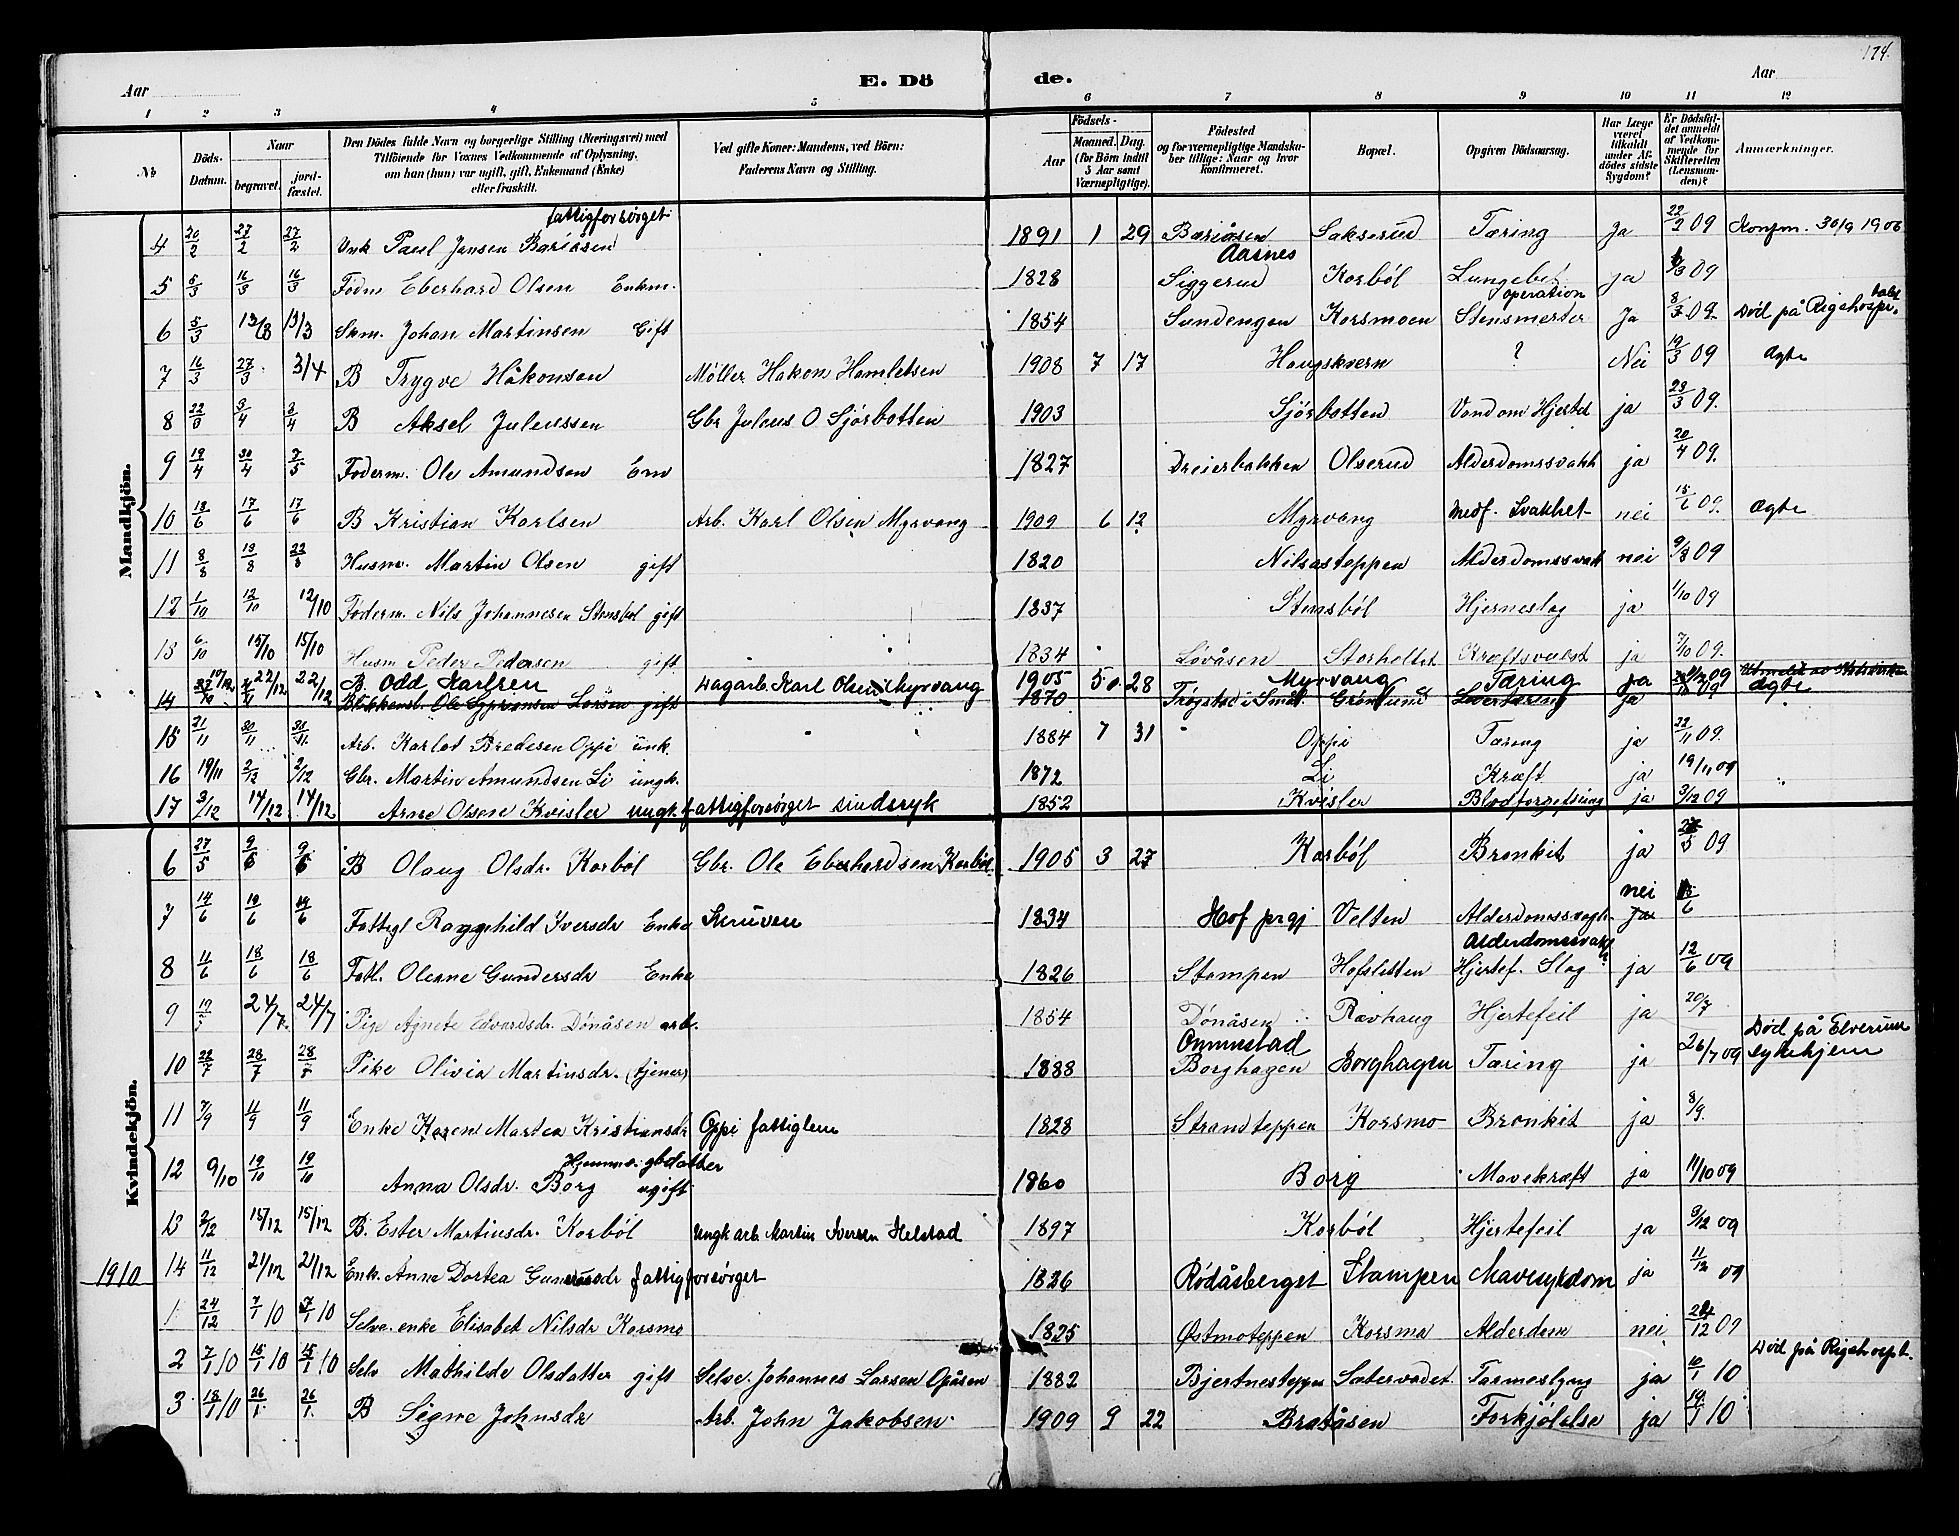 174.
Aar E. Dö de. Aar
1 2 3 4 5 6 7 8 9 10 11 12
No Döds-Datum. Naar begravet. jordfæstet. Den Dödes fulde Navn og borgerlige Stilling (Næringsvei) med Tilföiende for Voxnes Vedkommende af Oplysning, om han (hun) var ugift, gift, Enkemand (Enke) eller fraskilt. Ved gifte Koner: Mandens, ved Börn: Faderens Navn og Stilling. Födsels- Aar Maaned. Dag. (for Börn indtil 5 Aar samt Værnepligtige). Födested og for værnepligtige Mandskaber tillige: Naar og hvor konfirmeret. Bopæl. Opgiven Dödsaarsag. Har Læge været tilkaldt under Afdödes sidste Sygdom? Er Dödsfaldet anmeldt af Vedkommende for Skifteretten (Lensmanden)? Anmærkninger.
Mandkjön.
fattigforsörget
4 20/2 27/2 27/2 Unk Paul Jensen Bariåsen 1891 1 29 Bariåsen Sakserud Tæring Ja 22/2 09 Konfm. 30/9 1906
Aasnes
5 5/3 16/3 16/3 Födm Eberhard Olsen Enkm. 1828 Siggerud Korböl Lungebet. ja 6/3 09
operation
6 5/3 13/3 13/3 Skm. Johan Martinsen Gift 1854 Sundengen Korsmoen Stensmerter Ja 8/3 09. Död på Rigshospi-talet
7 16/3 27/3 3/4 B Trygve Håkonsen Möller Hakon Hamletsen 1908 7 17 Haugskvern ? Nei 19/3 09 Ægte
8 22/3 3/4 3/4 B Aksel Juleussen Gbr Juleus O Sjörbotten 1903 Sjörbotten Vand om Hjertet ja 23/3 09.
9 19/4 30/4 7/5 Föderm. Ole Amundsen Em 1827 Dreierbakken Olserud Alderdomssvakk ja 20/4 09.
10 13/6 17/6 17/6 B Kristian Karlsen Arb. Karl Olsen Myrvang 1909 6 12 Myrvang Medf. Svakhet nei 15/6 09. Ægte
11 8/8 13/8 22/8 Husm. Martin Olsen gift 1820 Nilsasteppen Alderdomssvakk nei 9/8 09
12 1/10 12/10 12/10 Föderm. Nils Johannesen Stensböl gift 1837 Stensböl Hjerneslag ja 1/10 09
13 6/10 15/10 15/10 Husm Peder Pedersen gift 1834 Lövåsen Storholtet Kræftsvulst ja 7/10 09.
10/12 22/12 22/12 B. Odd Karlsen Dagarb. Karl Olsen Myrvang 1905 5 28 Myrvang Tæring ja 11/12 09 Ægte
14 Blikkensl. Ole Syversen Lörsen gift 1870 Trögstad i Smål. Grönlund Levertæring ja 09
15 21/11 30/11 30/11 Arb. Karlot Bredesen Oppi unk. 1884 7 31 Oppi Tæring ja 22/11 09.
16 19/11 2/12 2/12 Gbr. Martin Amundsen Li ungk. 1872 Li Kræft ja 19/11 09
17 3/12 14/12 14/12 Arne Olsen Kvisler ungk. fattigforsörget sindssyk 1852 Kvisler Blodforgiftning ja 3/12 09
Kvindekjön.
6 27/5 9/6 9/6 B Olaug Olsdr. Korböl Gbr. Ole Eberhardsen Korböl. 1905 3 27 Korböl Bronkit ja 28/5 09
nei
7 14/6 19/6 19/6 Fattigl Ragnhild Iversdr Enke Skruven 1834 Hof prgj Velten Alderdomssvagh ja 15/6
Alderdomssvakh
8 11/6 18/6 18/6 Fatl. Oleane Gundersdr Enke 1826 Stampen Hofsletten Hjertef. Slag ja 12/6 09
9 24/7 24/7 Pige Agnete Edvardsdr. Dönåsen arb. 1854 Dönåsen Rævhaug Hjertefeil ja 20/7
Ommestad Död på Elverum
10 22/7 28/7 28/7 Pike Olivia Martinsdr. (tjener) 1888 Borghagen Borghagen Tæring ja 26/7 09 sykehjem
11 7/9 11/9 11/9 Enke Karen Martea Kristiansdr Oppi fattiglem 1828 Strandteppen Korsmo Bronkit ja 8/9.
Hjemmev. gbdatter
12 9/10 19/10 19/10 Anna Olsdr. Borg ugift 1860 Borg Mavekræft ja 11/10 09
13 2/12 15/12 15/12 B. Ester Martinsdr. Korböl Ungk arb Martin Iversen Helstad 1897 Korböl Hjertefeil ja 9/12 09
1910 14 11/12 21/12 21/12 Enk. Anne Dortea Gunerusdr fattigforsörget 1826 Rödåsberget Stampen Mavesykdom ja 11/12 09
1 24/12 7/1 10 7/1 10 Selve. enke Elisabet Nilsdr Korsmo 1825 Östmoteppen Korsmo Alderdom nei 28/12 09
Död på Rigshospt.
2 7/1 10 15/1 10 15/1 10 Selv Mathilde Olsdatter gift Selve. Johannes Larsen Opåsen 1882 Bjertnesteppen Sætervadet Tarmeslyng ja 10/1 10
3 18/1 10 26/1. 26/1. B Signe Johnsdr Arb. John Jakobsen. 1909 9 22 Bratåsen Forkjölelse ja 19/1 10